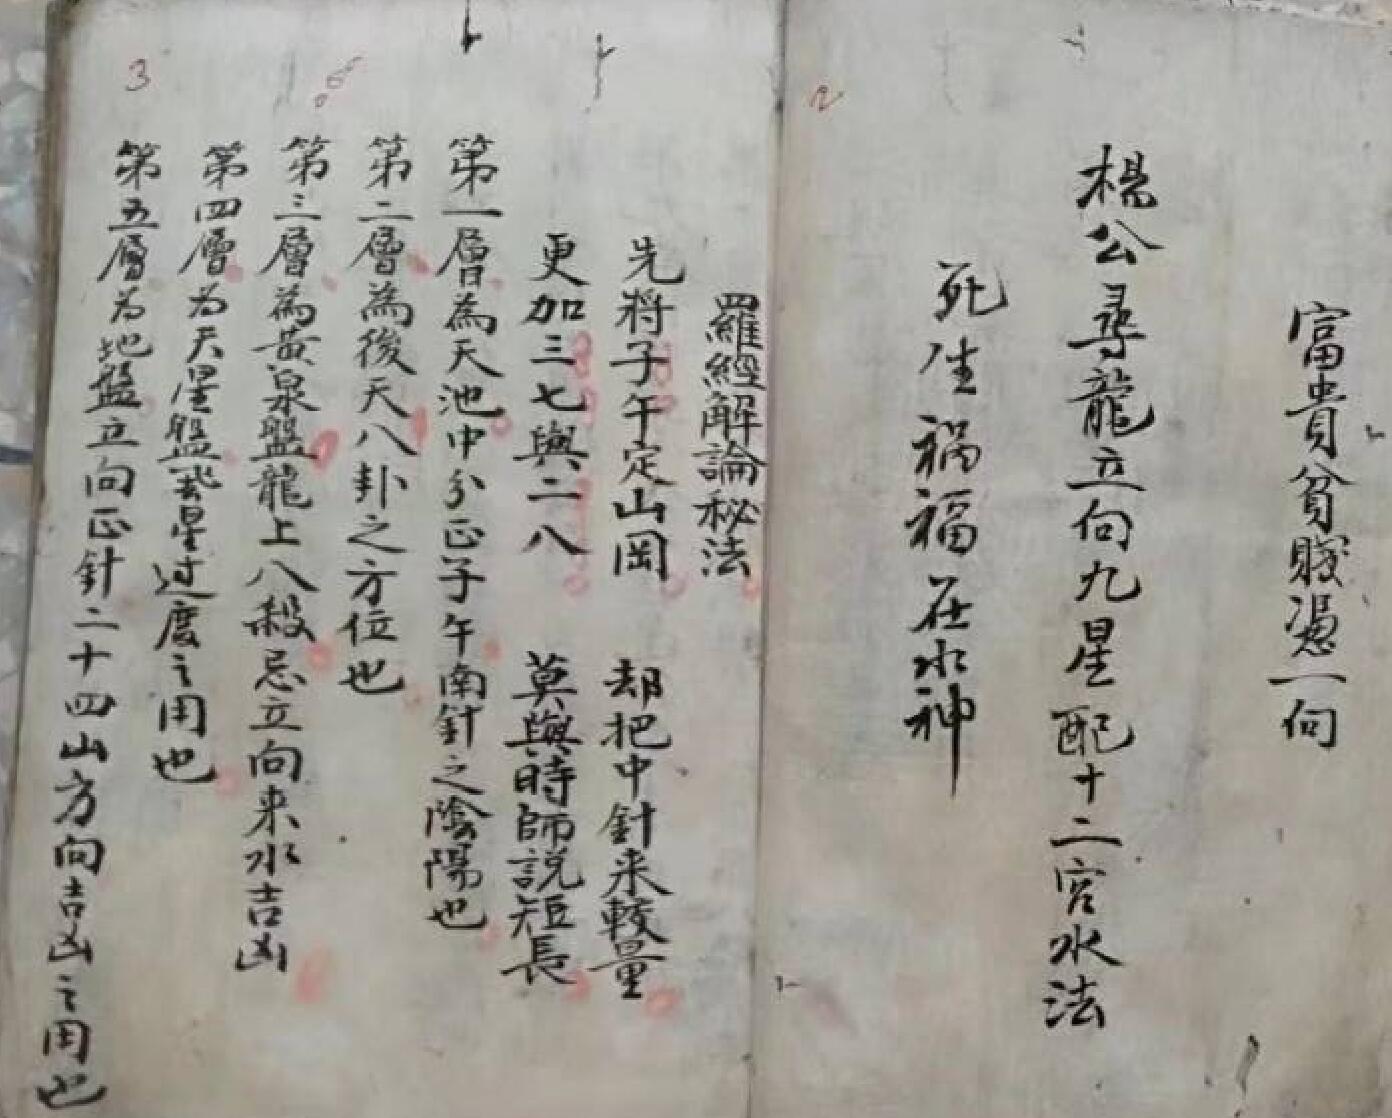 2
富貴貧賤憑一向
楊公尋龍立向九星配十二宮水法
死生禍福在水神
3
羅經解論秘法
先將子午定山岡 却把中針来較量
更加三七與二八 莫與時師説短長
第一層為天池中分正子午南針之陰陽也
第二層為後天八卦之方位也
第三層為黃泉盤龍上八殺忌立向来水吉凶
第四層为天星盤星过度之用也
第五層为地盤立向正針二十四山方向吉凶之用也